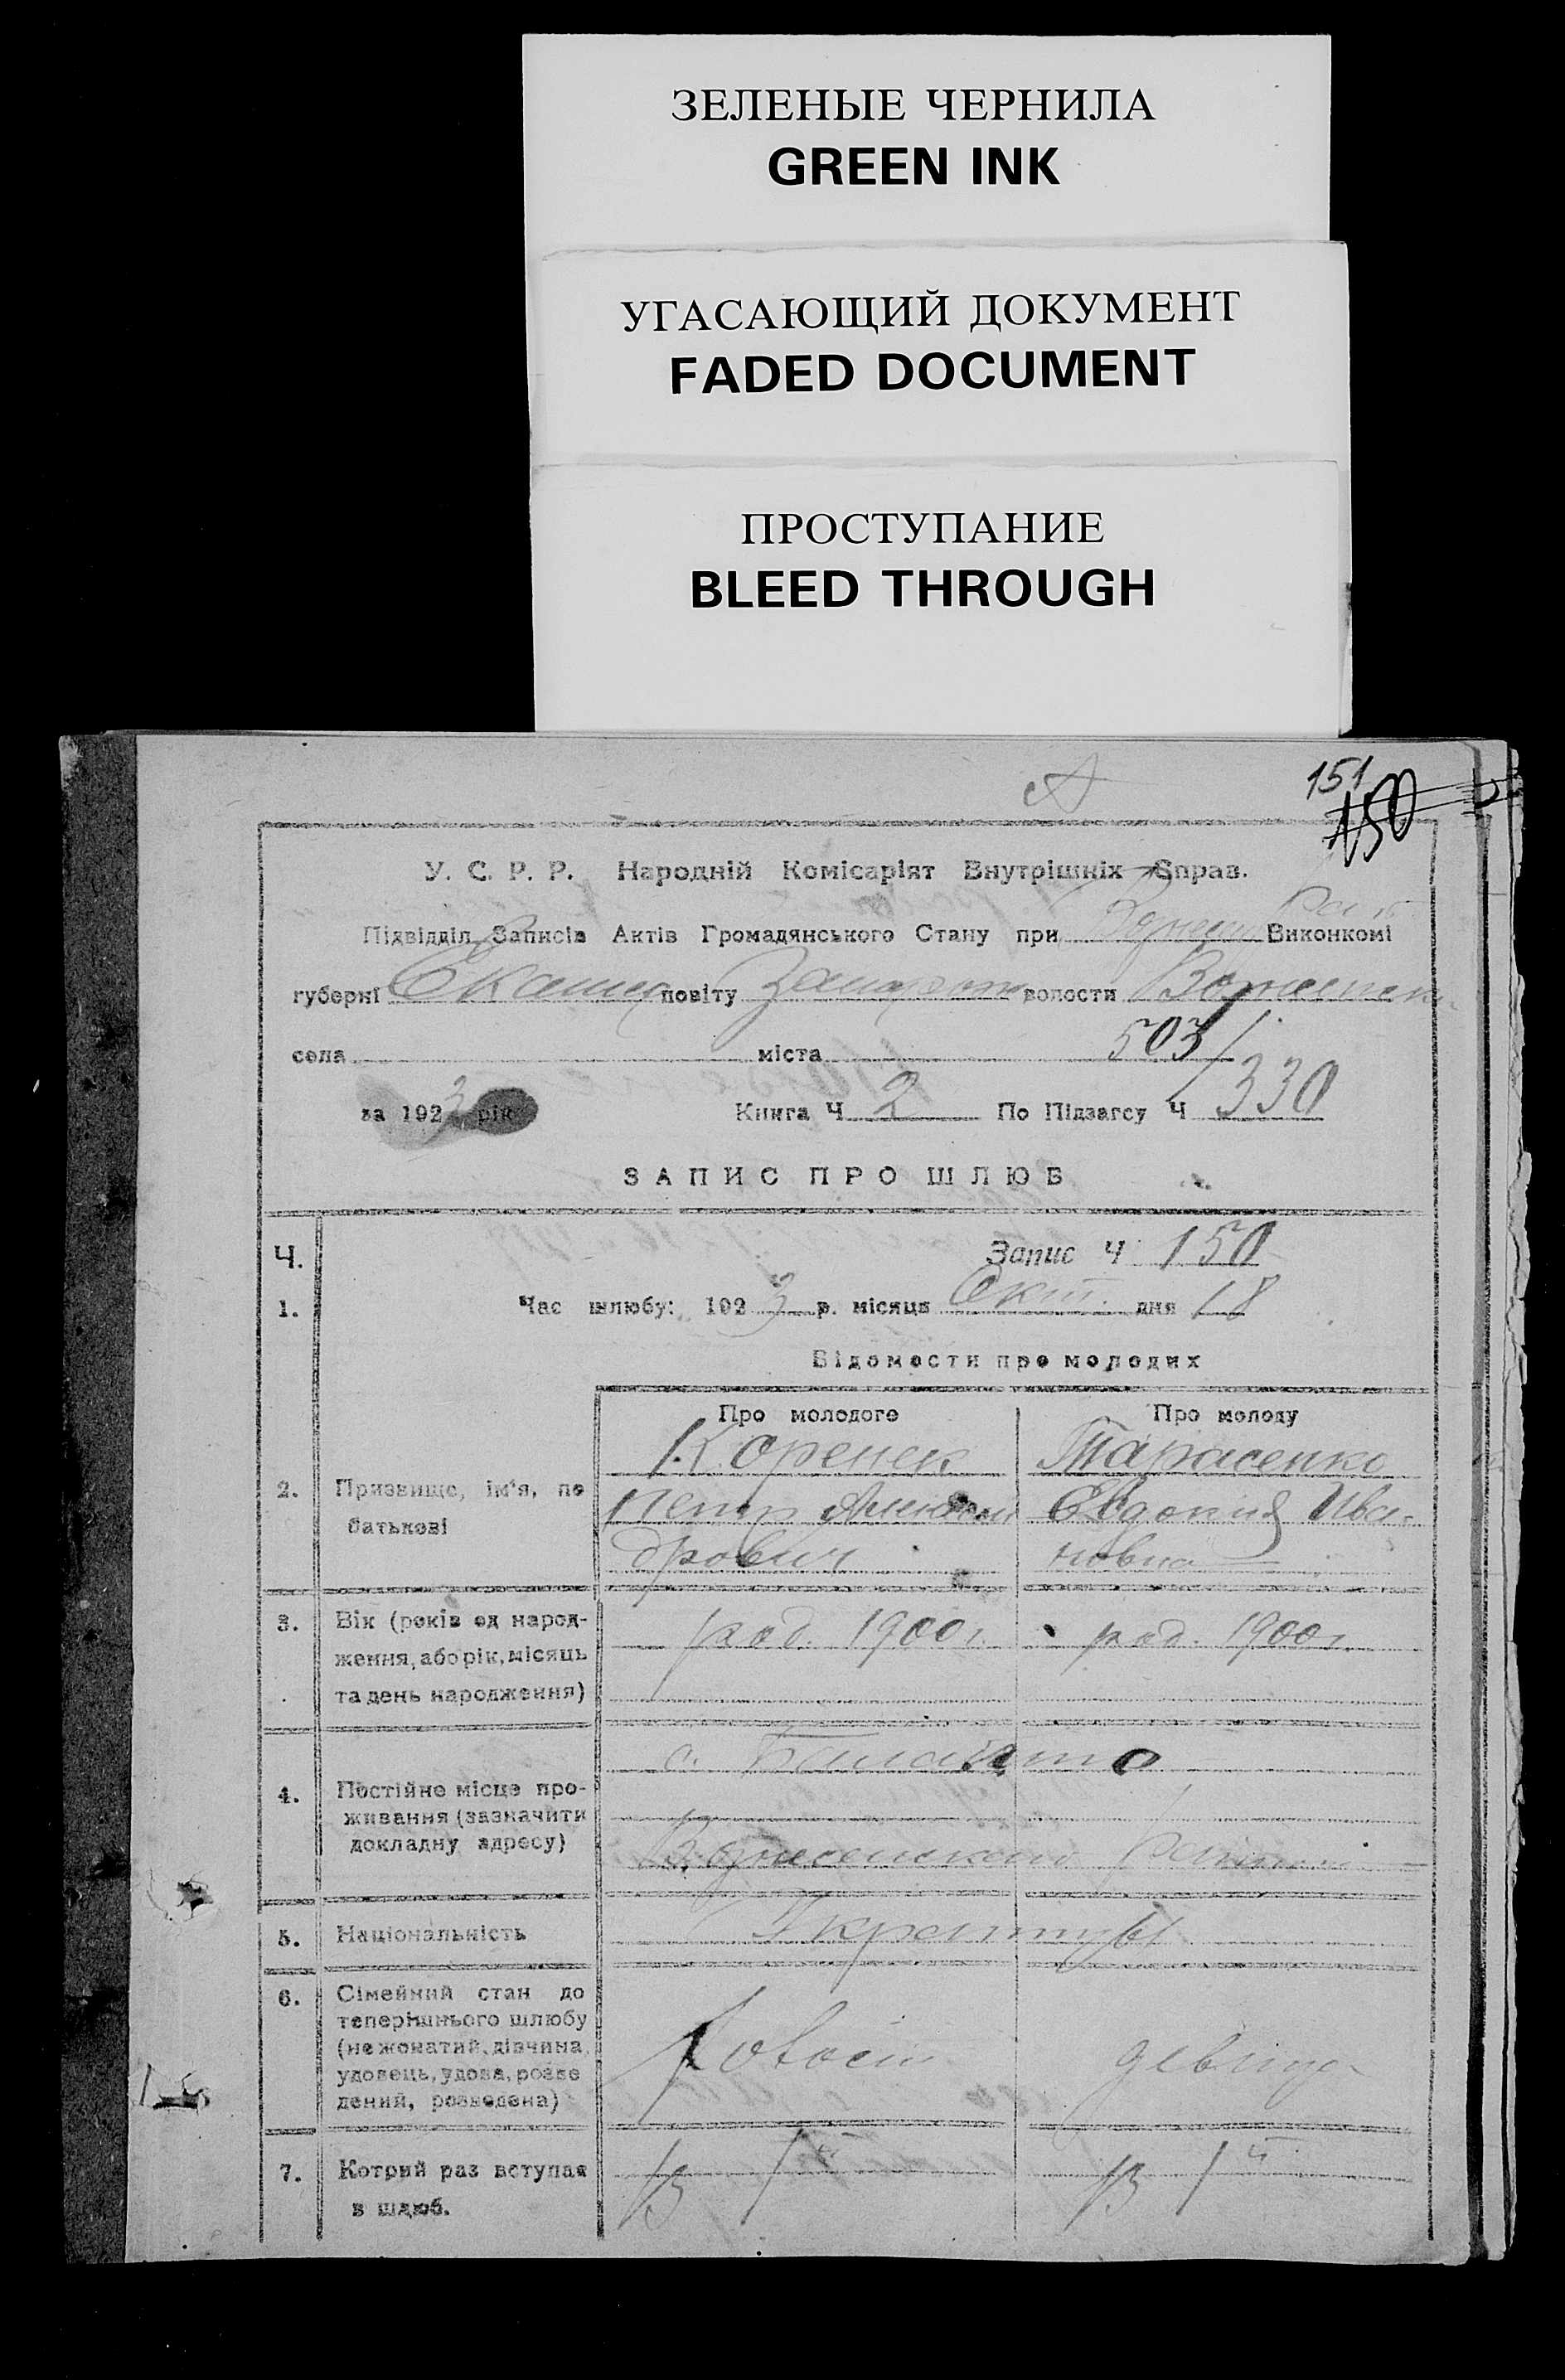 ЗЕЛЕНЫЕ ЧЕРНИЛА
GREEN INK
УГАСАЮЩИЙ ДОКУМЕНТ
FADED DOCUMENT
ПРОСТУПАНИЕ
BLEED THROUGH
151
150
У. С. Р. Р. Народній Комісаріят Внутрішніх Справ.
Підвідділ Записів Актів Громадянського Стану при Виконкомі
губерні повіту волости
села міста 503/
за 1923 рік Книга Ч 2 По Підзагсу Ч 330
ЗАПИС ПРО ШЛЮБ
Ч. Запис Ч 150
1. Час шлюбу: 1923 р. місяця Окт. дня 18
Відомости про молодих
Про молодого Про молоду
Коренек Тарасенко
2. Призвище, ім'я, по батькові
Петр Евдокия Ива-
дрович новна
3. Вік (років од народ-
ження, або рік, місяць
та день народження)
род. 1900 г. род. 1900 г.
4. Постійне місце про-
живання (зазначити
докладну адресу)
с.
5. Національність
6. Сімейний стан до
теперішнього шлюбу
(нежонатий, дівчина,
удовець, удова, розве
дений, розведена)
девица
7. Котрий раз вступає
в шлюб.
В 1й В 1й